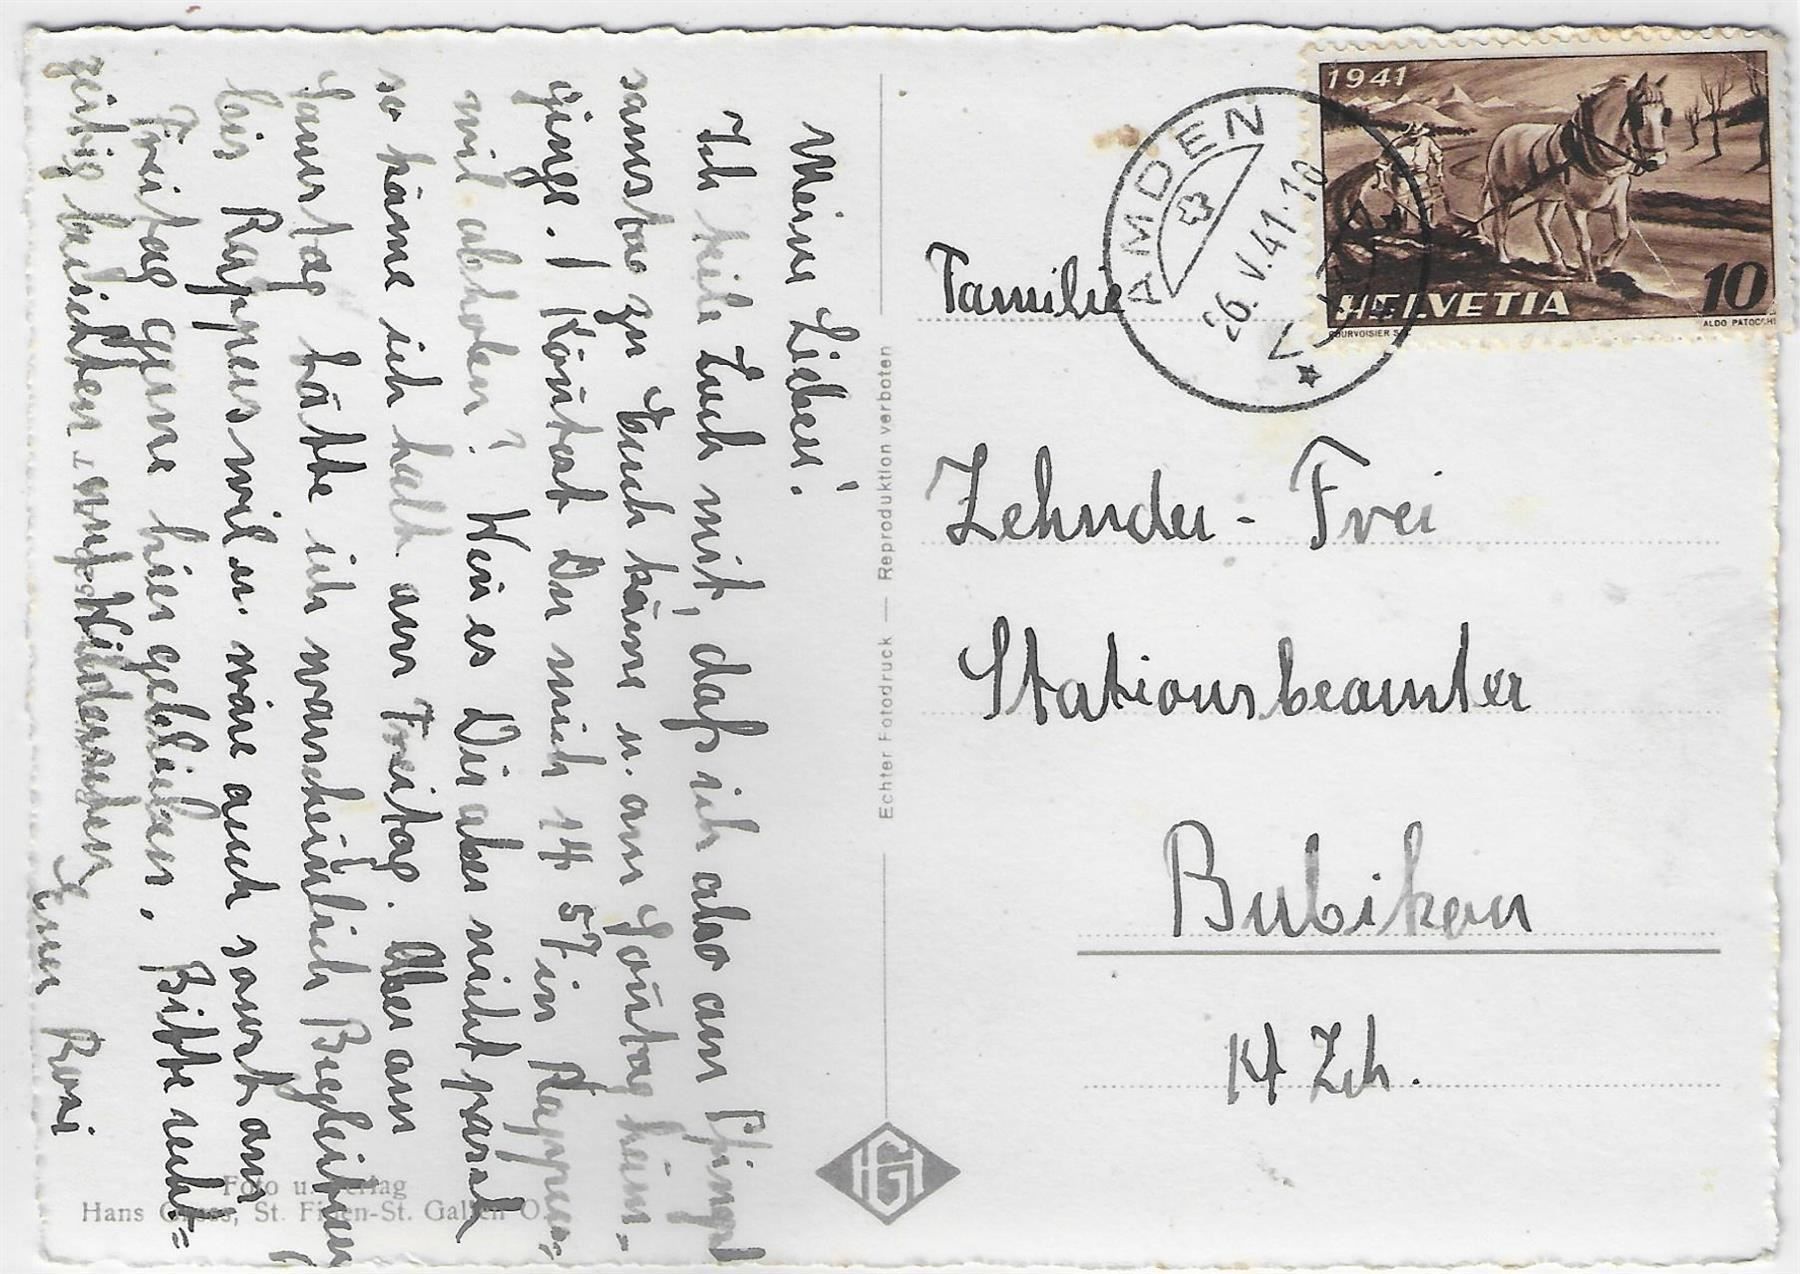 Meine Lieben!
Ich teile Euch mit, daß ich also am Pfingst
samstag zu Euch käme u. am Son̄tag heim-
ginge. Kön̄test Du mich 14 57 in Rappers-
wil abholen? Wen es Dir aber nicht passt
so käme ich halt am Freitag. Aber am
Samstag hätte ich warscheinlich Begleitung
bis Rapperswil u. wäre auch sonst am
Freitag gerne hier geblieben. Bitte recht-
zeitig berichten
Euer Romi
Foto u. Verlag
Hans Gross, St. Fiden-St. Gallen O.
Echter Fotodruck — Reproduktion verboten
HGH
1941
HELVETIA
10
COURVOISIER S.A.
ALDO PATOCCHI
AMDEN
26.V.41.10
Familie
Zehnder-Frei
Stationsbeamter
Bubikon
Kt Zch.